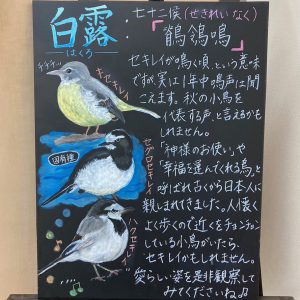 白露
はくろ
七十二候(せきれい なく)
「鶺鴒鳴」
セキレイが鳴く頃、という意味
ですが、実は1年中鳴声は聞
こえます。秋の小鳥を
代表する声、と言えるかも
しれません。
「神様のお使い」や
「幸福を運んでくれる鳥」と
呼ばれ古くから日本人に
親しまれてきました。人懐く
よく歩くので近くをチョンチョン
している小鳥がいたら、
セキレイかもしれません。
愛らしい姿を是非観察して
みてくださいね♫
チチチッ
キセキレイ
固有種
セグロセキレイ
ハクセキレイ